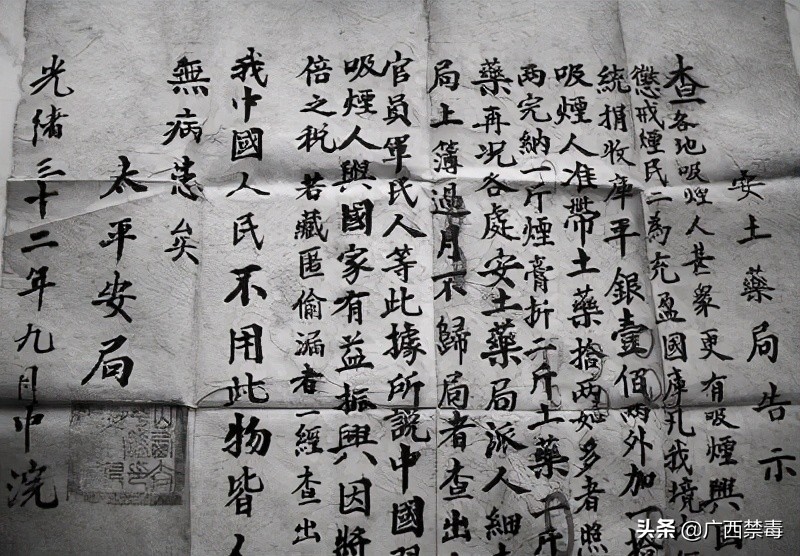 安土藥局告示
查各地吸煙人甚衆更有吸煙與
懲戒煙民二為充盈國庫孔我境
統捐收庫平銀壹佰兩外加一拾
吸煙人准帶土藥拾兩如多者照
兩完納一斤煙膏折二斤土藥
藥再况各處安土藥局派人細
局土簿過月不歸局者查出
官員軍民人等此據所説中國
吸煙人與國家有益振興因將
倍之税若藏匿偷漏者一經查出
我中國人民不用此物皆人
無病患矣
太平安局
光緒三十二年九月中浣
头条 @广西禁毒